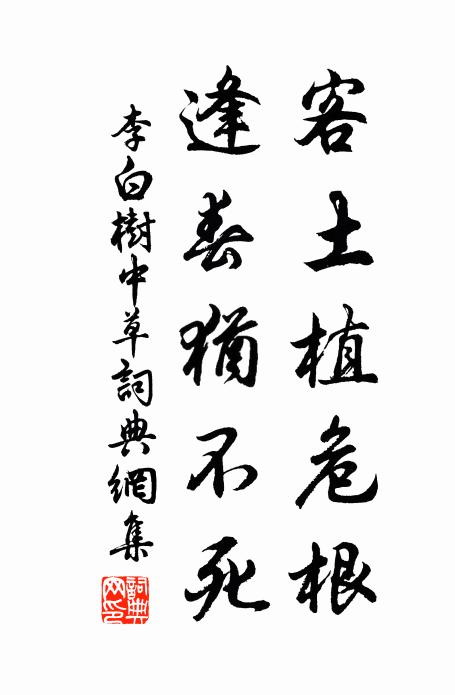 客土植危根
逢春猶不死
李白樹中草詞典網集
詞典網印